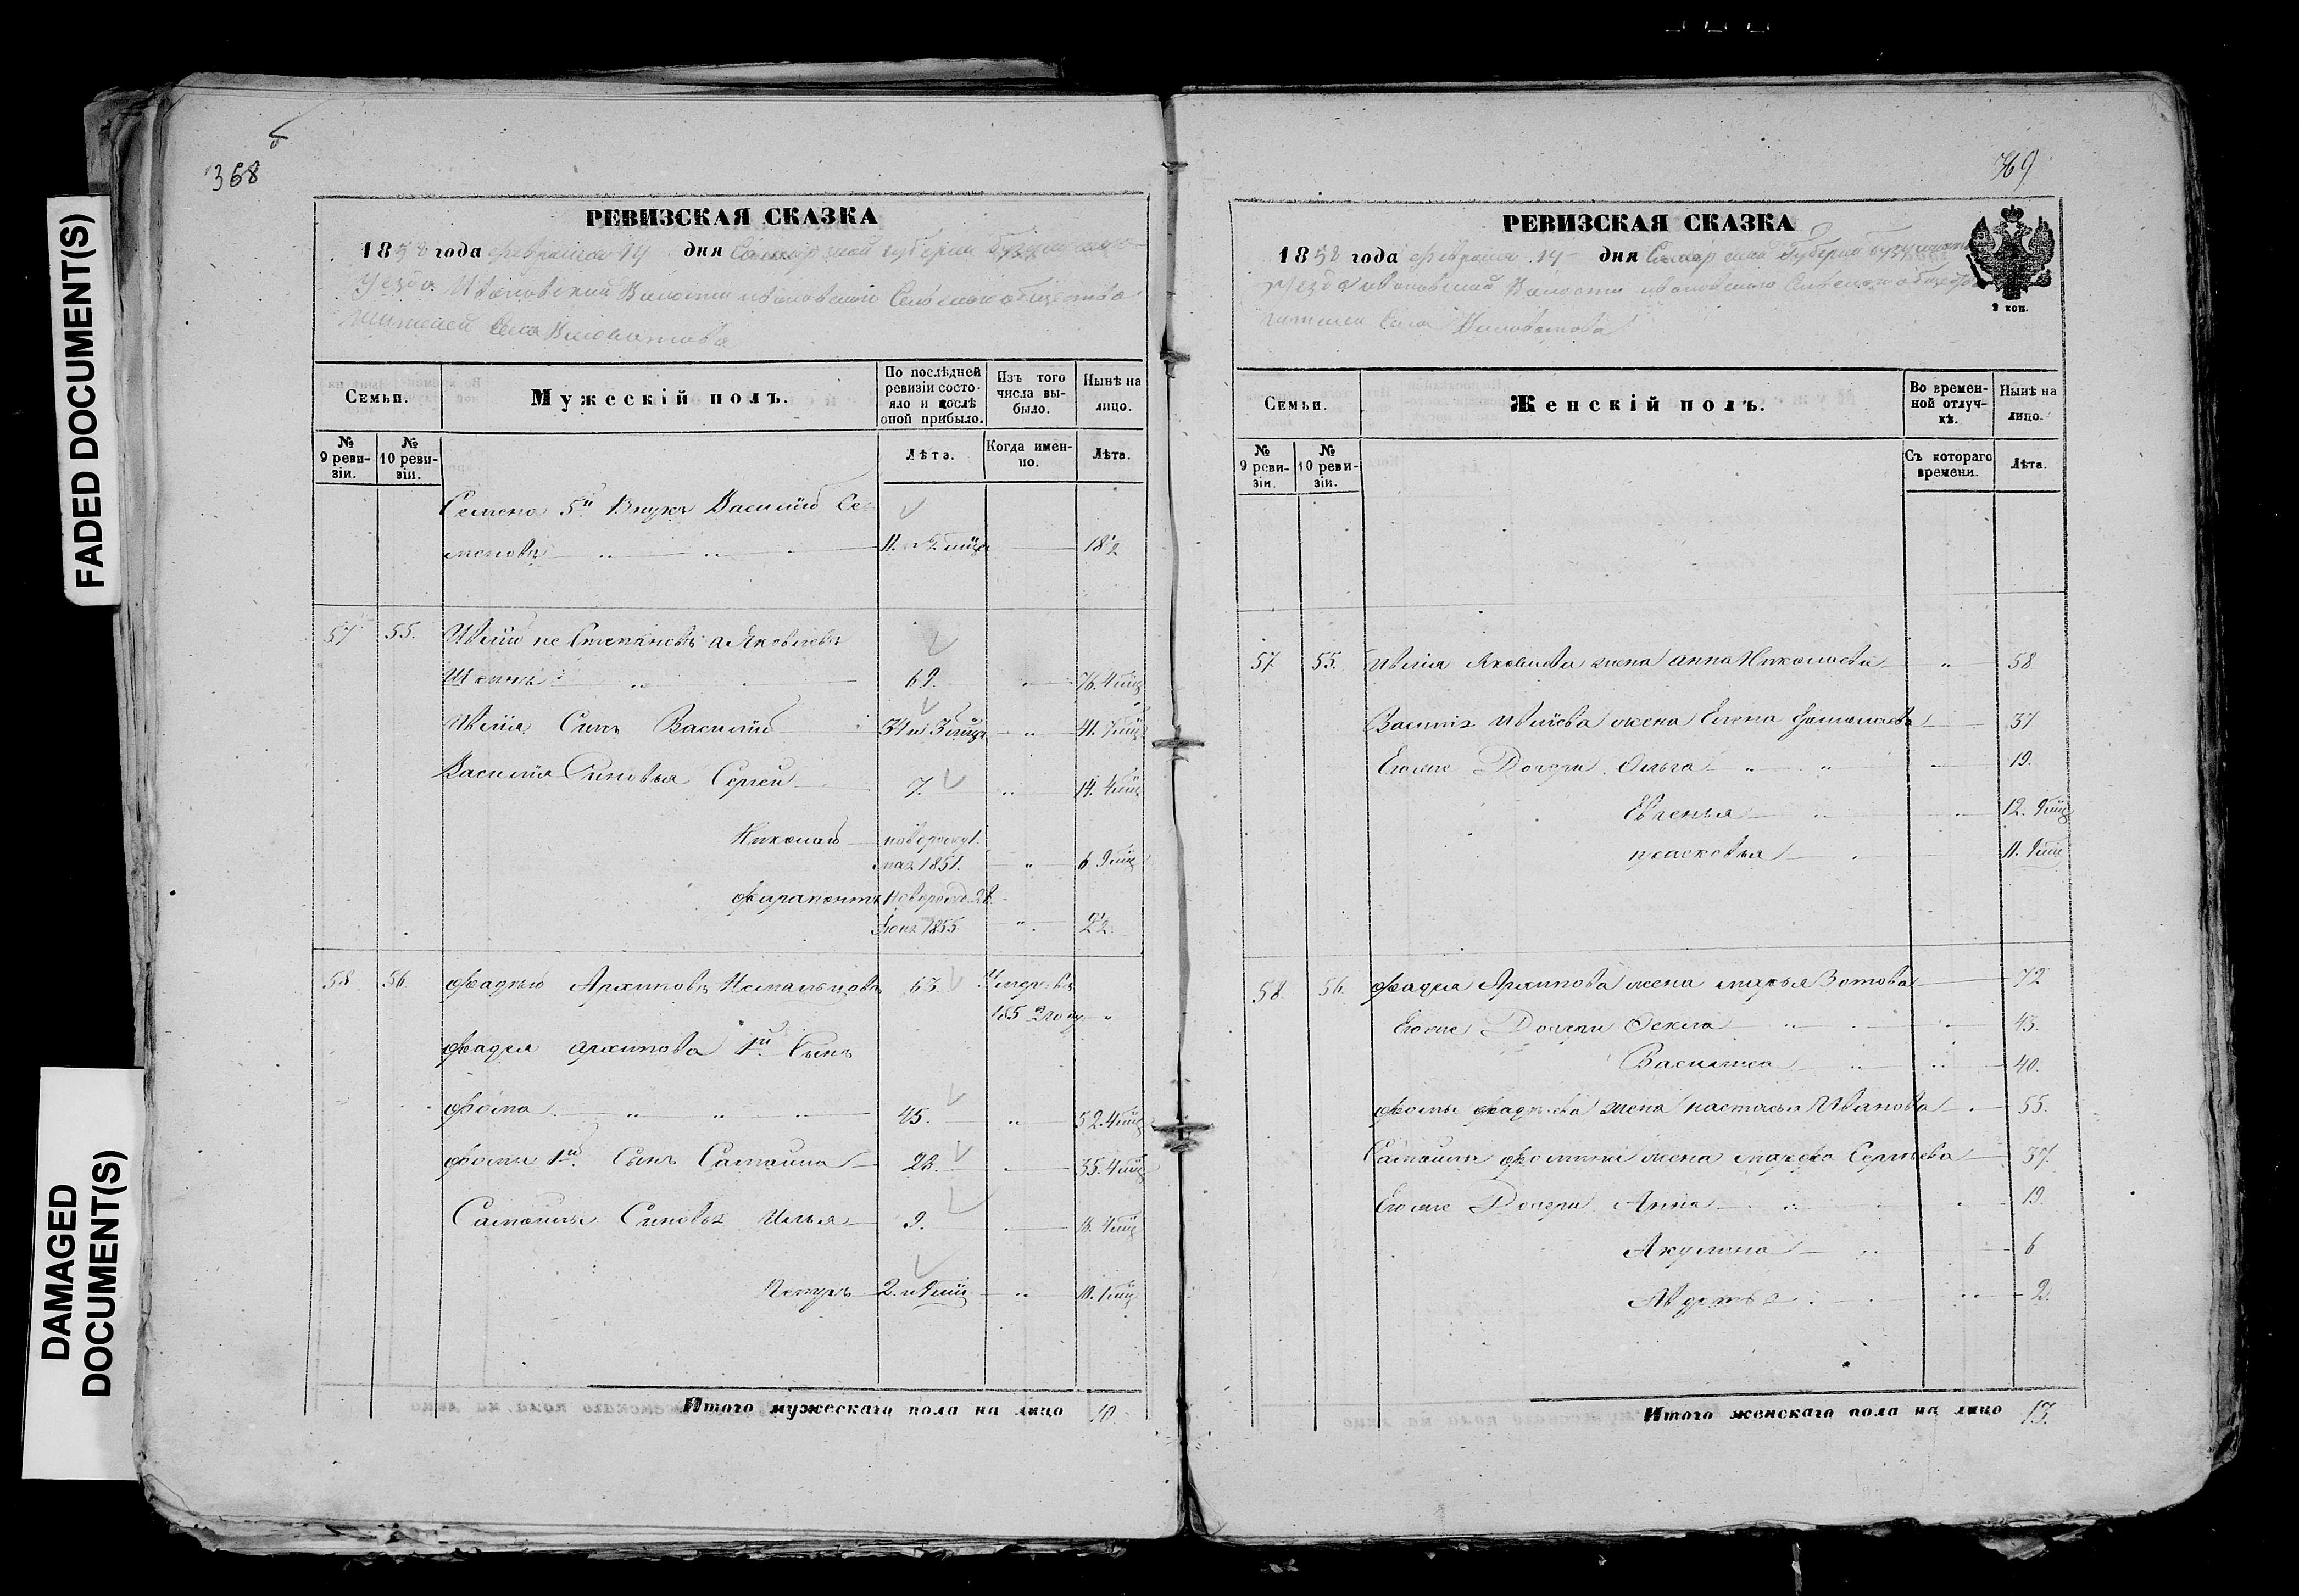 FADED DOCUMENT(S)
DAMAGED
DOCUMENT(S)
368
РЕВИЗСКАЯ СКАЗКА
1858 года февраля 14 дня Самарской губернии
Уезда Ивановской Волости Ивановского Сельского общества
жителей Села
Семьи.
Мужескій полъ.
По послѣдней ревизіи состояло и послѣ оной прибыло.
Изъ того числа выбыло.
Нынѣ на лицо.
№ 9 ревизіи.
№ 10 ревизіи.
Лѣта.
Когда именно.
Лѣта.
Семена 5й Внукъ Василий Се-
менова 18 1/2
57 55. Ивлий не Степановъ а Яковлевъ
69. 76. 4 мц
Ивлия Сынъ Василий 34 и 3 мца 41. 7 мц
Василия Сыновья Сергей 7. 14. 4 мц
Николай новорожд
мая 1851. 6 9 мц
Фарапонтъ новорожд. 28.
Іюня 1855. 2 1/2
58 56. Фадей Архиповъ 63 Умеръ въ
185 году
Фадея Архипова 1й Сынъ
Фома 45. 52. 4 мц
Фомы 1й Сынъ Самойла 28. 35. 4 мц
Самойлы Сыновья Илья 9. 16. 4 мц
Петръ 2. и 9 мц 10. 1 мц
Итого мужескаго пола на лицо 10.
369
РЕВИЗСКАЯ СКАЗКА
1858 года февраля 14 дня Самарской Губернии
Уезда Ивановской Волости Ивановского Сельского общества
жителей Села
2 коп.
Семьи.
Женскій полъ.
Во временной отлучкѣ.
Нынѣ на лицо.
№ 9 ревизіи.
№ 10 ревизіи.
Съ котораго времени.
Лѣта.
57 55. Ивлия Яковлева жена Анна Николаева 58
Василия Ивлиева жена Елена 37
Егоже Дочери Ольга 19.
Евгенья 12. 9 мц
Прасковья 11. 9 мц
58 56. Фадея Архипова жена Марья Зотова 72
Егоже Дочери Фекла 43.
Василиса 40.
Фомы Фадеева жена Настасья Иванова 55.
Самойлы Фомина жена Марфа Сергеева 37.
Егоже Дочери Анна 19.
Акулина 6
Авдотья 2.
Итого женскаго пола на лицо 13.